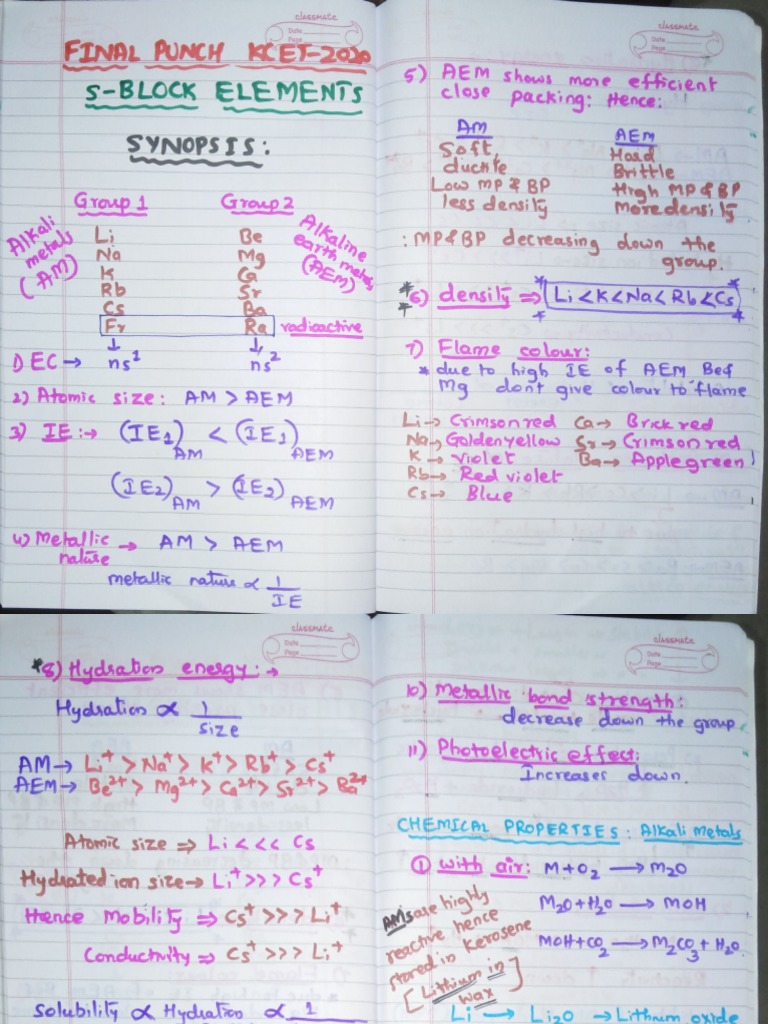 classmate
Date
Page
FINAL PUNCH KCET-2020
S-BLOCK ELEMENTS
SYNOPSIS:
Group 1 Group 2
Alkali metals (AM)
Alkaline earth metals (AEM)
Li Be
Na Mg
K Ca
Rb Sr
Cs Ba
Fr Ra radioactive
↓ ↓
1) EC → ns¹ ns²
2) Atomic size: AM > AEM
3) IE :→ (IE₁)AM < (IE₁)AEM
(IE₂)AM > (IE₂)AEM
4) Metallic nature → AM > AEM
metallic nature ∝ 1/IE
classmate
Date
Page
5) AEM shows more efficient
close packing: Hence:
AM AEM
Soft, Hard
ductile Brittle
Low MP & BP High MP & BP
less density More density
: MP & BP decreasing down the
group.
6) density ⇒ Li < K < Na < Rb < Cs
7) Flame colour:
* due to high IE of AEM Be &
Mg don't give colour to flame
Li → Crimson red Ca → Brick red
Na → Golden yellow Sr → Crimson red
K → Violet Ba → Apple green
Rb → Red violet
Cs → Blue
classmate
Date
Page
*8) Hydration energy: →
Hydration ∝ 1/size
AM → Li⁺ > Na⁺ > K⁺ > Rb⁺ > Cs⁺
AEM → Be²⁺ > Mg²⁺ > Ca²⁺ > Sr²⁺ > Ba²⁺
Atomic size ⇒ Li <<< Cs
Hydrated ion size → Li⁺ >>> Cs⁺
Hence Mobility ⇒ Cs⁺ >>> Li⁺
Conductivity ⇒ Cs⁺ >>> Li⁺
Solubility ∝ Hydration ∝ 1
classmate
Date
Page
10) Metallic bond strength:
decrease down the group
11) Photoelectric effect:
Increases down.
CHEMICAL PROPERTIES: Alkali Metals
① with air: M + O₂ → M₂O
M₂O + H₂O → MOH
MOH + CO₂ → M₂CO₃ + H₂O
AMs are highly
reactive hence
stored in Kerosene
[Lithium in
wax]
Li → Li₂O → Lithium oxide